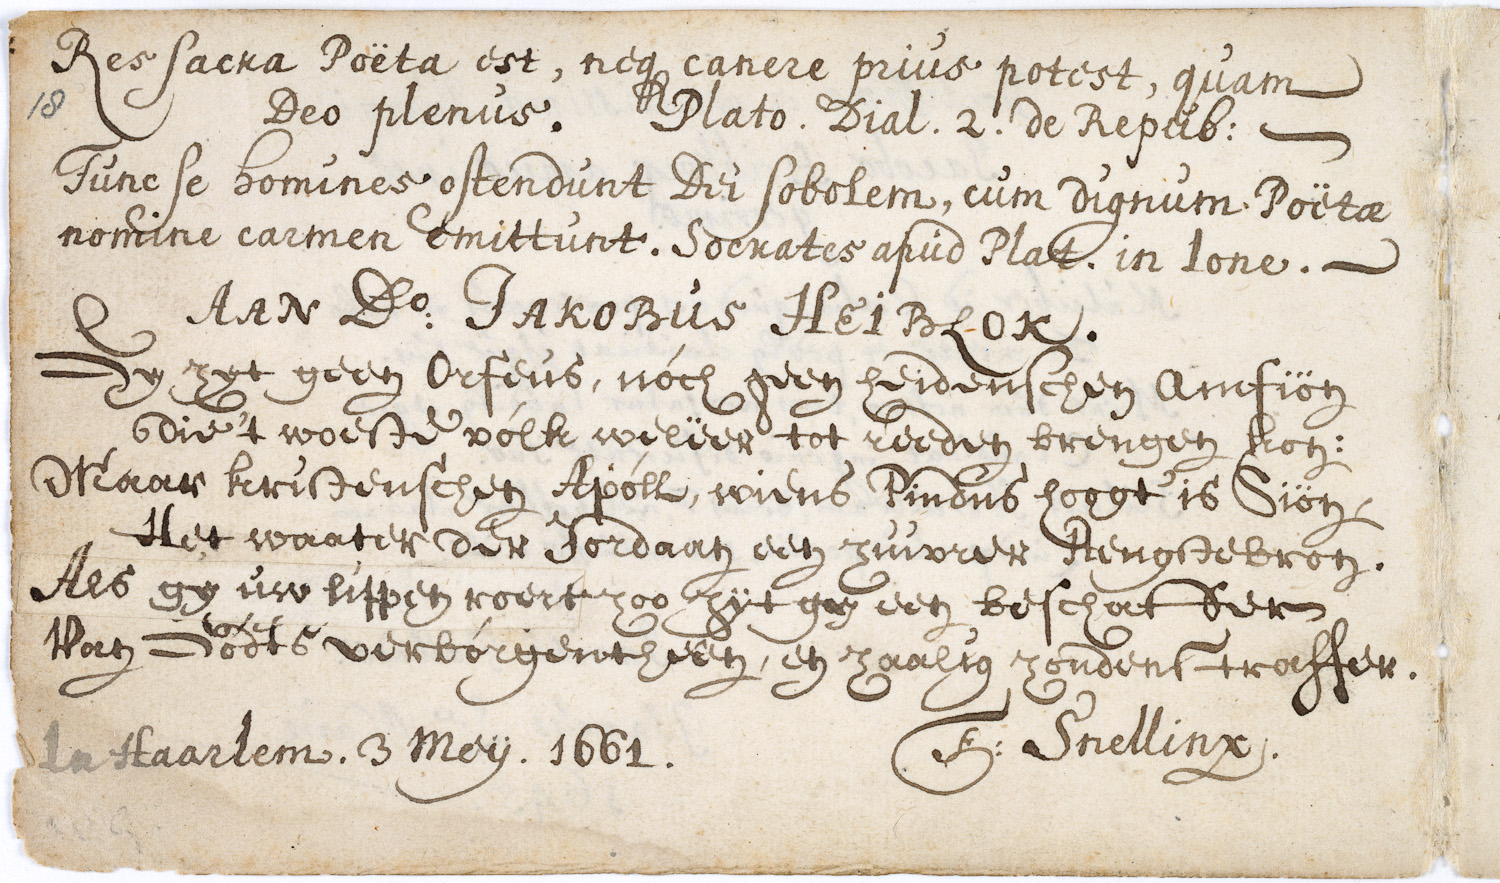 Res sacra Poëta est, neq canere prius potest, quam
18
Deo plenus. Plato. Dial. 2. de Repub:
Tunc se homines ostendunt Dei sobolem, cum dignum Poëtae
nomine carmen emittunt. Socrates apud Plat. in Ione.
AAN Do: IAKOBUS HEIBLOK.
Gy zyt geen Orfeus, nóch geen heidenschen Amfiön
Die't woeste vólk weleer tot reeden brengen kon:
Maar kristenschen Apóll, wiens Pindus hoogt' is Siön,
Het waater der Jordaan een zuivrer Hengstebron.
Als gy uw lippen roert zoo zÿt gy een beschatter
Van Godts verbórgentheen, en zaalig zondenstraffer.
In Haarlem. 3 Meÿ. 1661.
F: Snellinx.